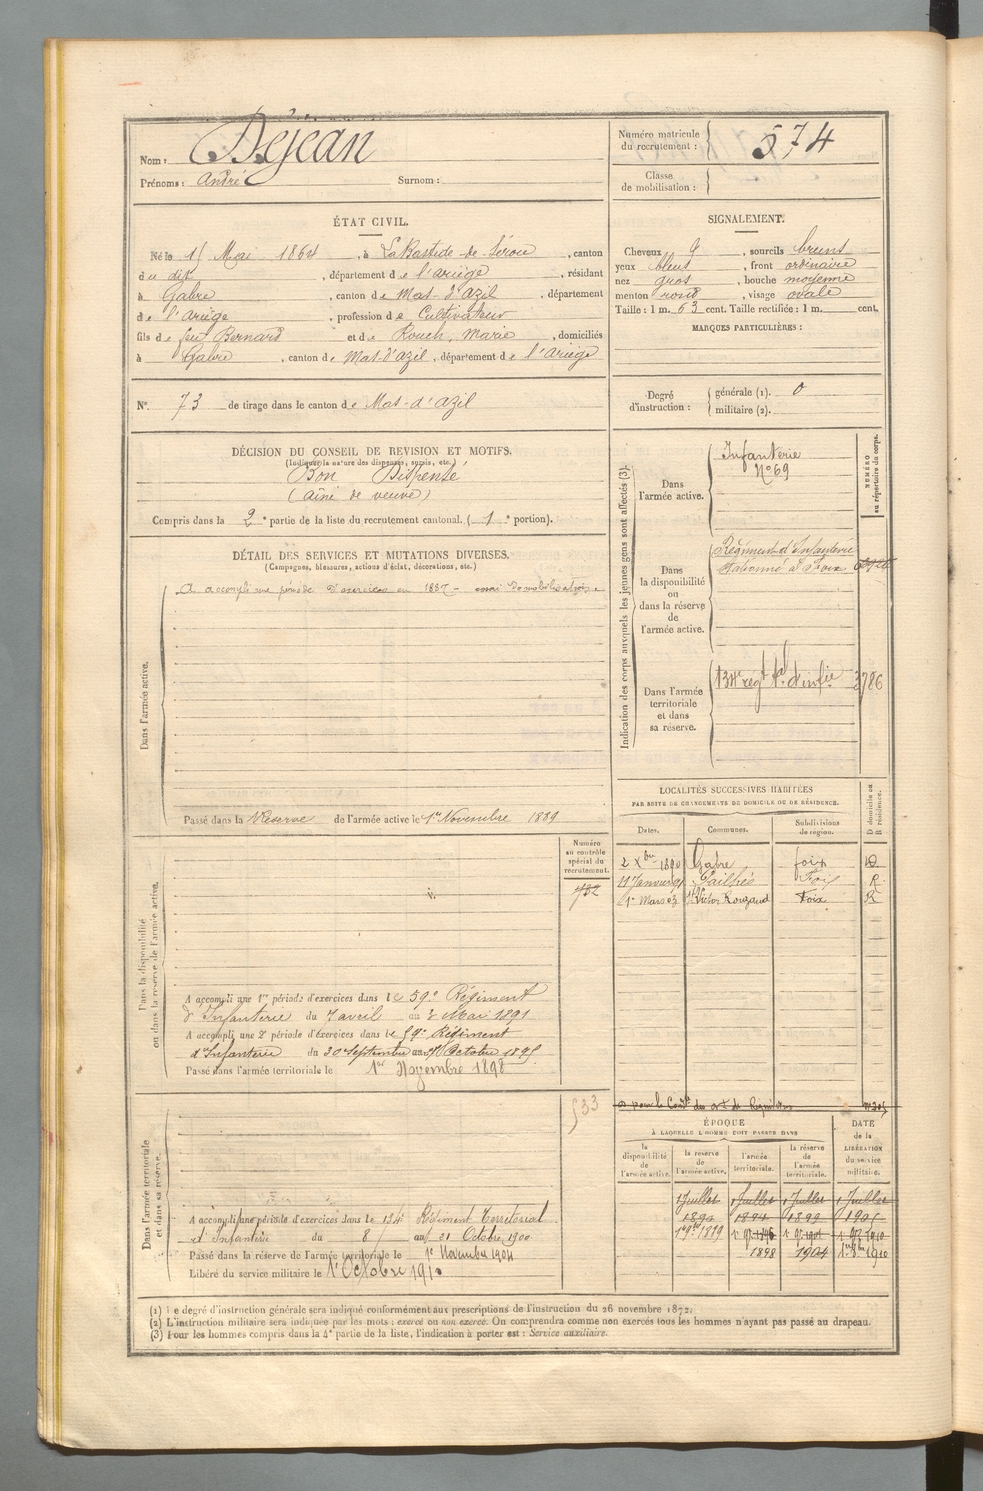 Nom : Déjean
Prénoms : André Surnom :
Numéro matricule du recrutement : 574
Classe de mobilisation :
ÉTAT CIVIL.
Né le 15 Mai 1864, à La Bastide de Sérou, canton
du dit, département de l'ariège, résidant
à Gabre, canton de Mas-d'Azil, département
de l'Ariège, profession de Cultivateur
fils de feu Bernard et de Rouch, Marie, domiciliés
à Gabre, canton de Mas-d'azil, département de l'Ariège
SIGNALEMENT.
Cheveux g, sourcils bruns
yeux bleus, front ordinaire
nez gros, bouche moyenne
menton rond, visage ovale
Taille : 1 m. 63 cent. Taille rectifiée : 1 m. cent.
MARQUES PARTICULIÈRES :
N° 73 de tirage dans le canton de Mas-d'Azil
Degré d'instruction : générale (1). 0
militaire (2).
DÉCISION DU CONSEIL DE REVISION ET MOTIFS.
(Indiquer la nature des dispenses, sursis, etc.)
Bon Dispensé
(aîné de veuve)
Compris dans la 2e partie de la liste du recrutement cantonal. (1e portion).
DÉTAIL DES SERVICES ET MUTATIONS DIVERSES.
(Campagnes, blessures, actions d'éclat, décorations, etc.)
Dans l'armée active.
A accompli une période d'exercices en 1887 - essai de mobilisation.
Passé dans la Réserve de l'armée active le 1er Novembre 1889
Indication des corps auxquels les jeunes gens sont affectés (3).
NUMÉRO au répertoire du corps.
Dans l'armée active.
Infanterie
N° 69
Dans la disponibilité ou dans la réserve de l'armée active.
Régiment d'Infanterie
stationné à Foix
Dans l'armée territoriale et dans sa réserve.
134e régt tal d'infie 3786
LOCALITÉS SUCCESSIVES HABITÉES
PAR SUITE DE CHANGEMENTS DE DOMICILE OU DE RÉSIDENCE.
Dates. Communes. Subdivisions de région. D domicile ou R résidence.
2 Xbre 1890 Gabre foix D
11 Janvier 91 Pailhès Foix R
1er Mars 03 St Victor Rouzaud Foix R
Dans la disponibilité ou dans la réserve de l'armée active.
Numéro au contrôle spécial du recrutement.
782
A accompli une 1re période d'exercices dans le 59e Régiment
d'Infanterie du 7 avril au 4 Mai 1891
A accompli une 2e période d'exercices dans le 59e Régiment
d'Infanterie du 30 Septembre au Octobre 1895
Passé dans l'armée territoriale le 1er Novembre 1898
Dans l'armée territoriale et dans sa réserve.
533
A accompli une période d'exercices dans le 134e Régiment Territorial
d'Infanterie du 8 au 21 Octobre 1900
Passé dans la réserve de l'armée territoriale le 1er Novembre 1904
Libéré du service militaire le 1er Octobre 1910
ÉPOQUE
À LAQUELLE L'HOMME DOIT PASSER DANS
DATE de la LIBÉRATION du service militaire.
la disponibilité de l'armée active. la réserve de l'armée active. l'armée territoriale. la réserve de l'armée territoriale.
1 Juillet 1 Juillet 1 Juillet 1 Juillet
1890 1894 1899 1905
1898 1904
(1) Le degré d'instruction générale sera indiqué conformément aux prescriptions de l'instruction du 26 novembre 1872.
(2) L'instruction militaire sera indiquée par les mots : exercé ou non exercé. On comprendra comme non exercés tous les hommes n'ayant pas passé au drapeau.
(3) Pour les hommes compris dans la 4e partie de la liste, l'indication à porter est : Service auxiliaire.